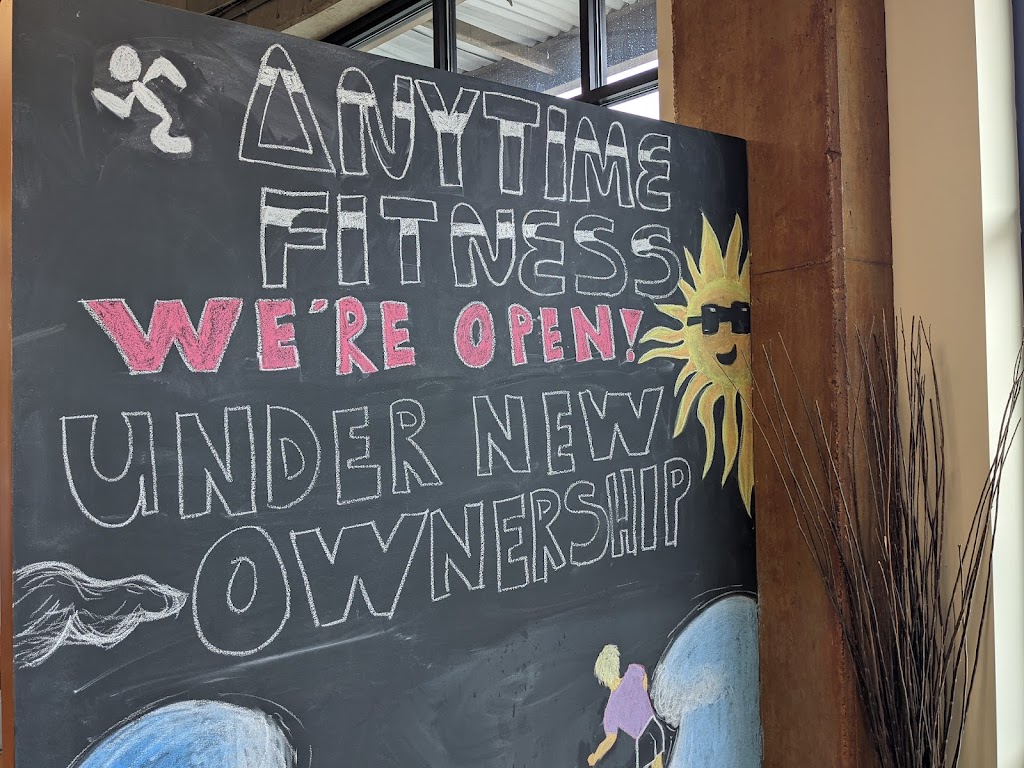 ANYTIME
FITNESS
WE'RE OPEN!
UNDER NEW
OWNERSHIP